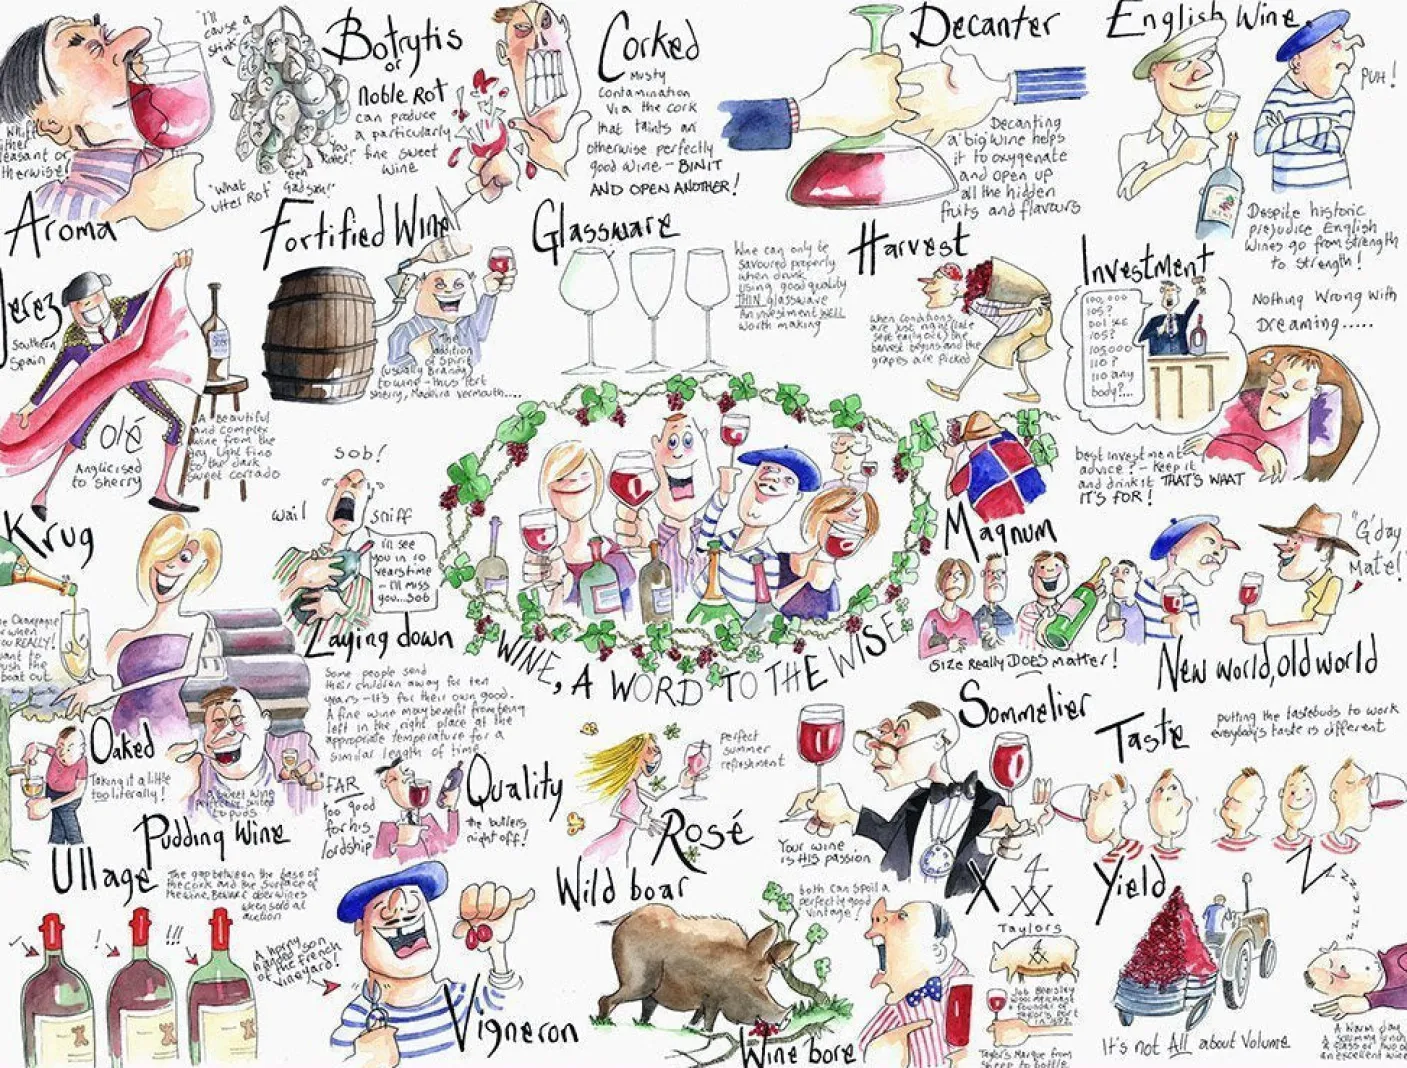 Aroma
"I'll cause a stink"
Botrytis
or
Noble Rot
can produce
a particularly
fine sweet
wine
"What
utter Rot"
Corked
Musty
contamination
via the cork
that taints an
otherwise perfectly
good wine - BIN IT
AND OPEN ANOTHER!
Decanter
Decanting
a big wine helps
it to oxygenate
and open up
all the hidden
fruits and flavours
English Wine
PUH!
Despite historic
prejudice English
wines go from strength
to strength!
Jerez
Southern
Spain
Olé
Anglicised
to sherry
A beautiful
and complex
wine from the
light fino
to the dark
sweet cortado
Fortified Wine
The
addition
of Spirit
(usually Brandy)
to wine - thus Port
sherry, Madeira vermouth....
Glassware
Wine can only be
savoured properly
when drunk
using good quality
THIN glassware
An investment WELL
worth making
Harvest
when conditions
are just right (late
sept early oct) the
harvest begins and the
grapes are picked
Investment
100,000
105?
105?
105,000
110?
110 any
body?...
Nothing Wrong with
Dreaming.....
best investment
advice? - Keep it
and drink it THAT'S WHAT
IT'S FOR!
Krug
you REALLY!
want to
push the
boat out
Sob!
wail
sniff
I'll see
you in 10
years time
- I'll miss
you...sob
Laying down
Some people send
their children away for ten
years - it's for their own good.
A fine wine may benefit from being
left in the right place at the
appropriate temperature for a
similar length of time
WINE, A WORD TO THE WISE
Magnum
Size Really DOES matter!
"G'day
Mate!"
New world, old world
Oaked
Taking it a little
too literally!
Pudding Wine
a sweet wine
perfectly suited
to puds
"FAR
too good
for his
lordship"
Quality
the butlers
night off!
Rosé
perfect
summer
refreshment
Sommelier
Your wine
is HIS passion
Taste
putting the tastebuds to work
everybody's taste is different
Ullage
The gap between the base of
the cork and the surface of
the wine. Beware old wines
when sold at
auction
! !!!
A horny
handed son
of the french
vineyard!
Vigneron
Wild boar
both can spoil a
perfectly good
vintage!
Wine bore
X
4
XX
Taylors
Job Bearsley
wool merchant
& founder of
Taylor's Port
in 1692
Taylor's Marque from
sheep to bottle
Yield
It's not All about Volume
Z z z z z z z
A warm day
a glass or two of
an excellent wine